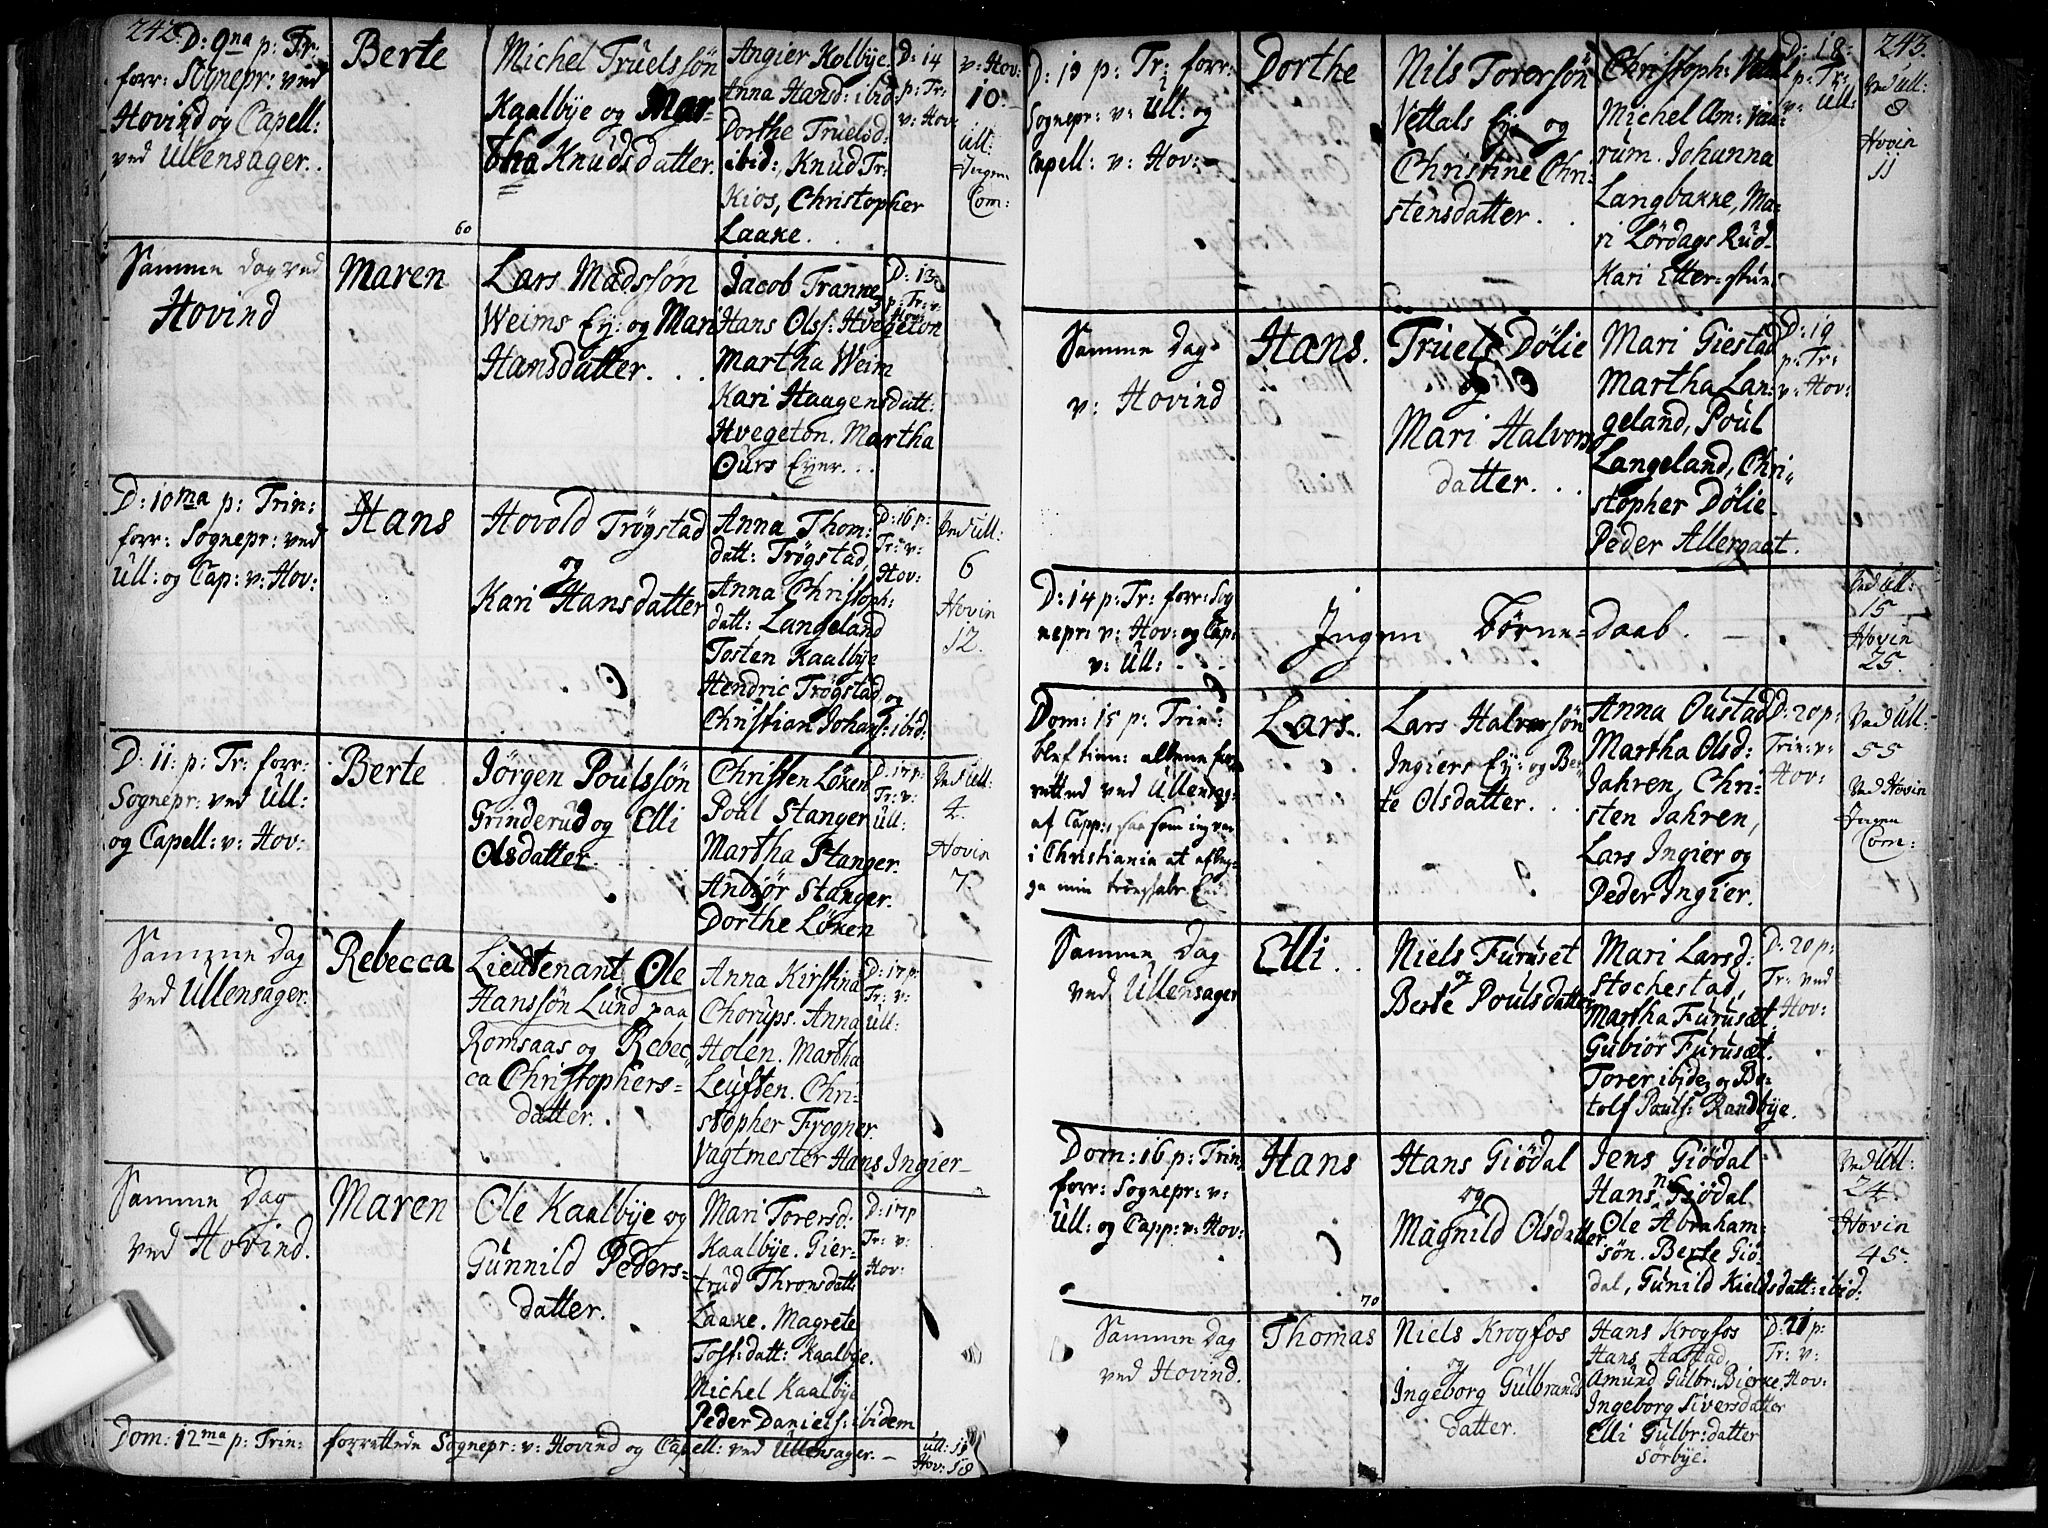 242.
D: 9na p: Tr.
forr: Sognepr: ved
Hovind og Capell:
ved Ullensager.
Berte
Michel Truelssön
Kaalbÿe og Mar-
tha Knudsdatter.
Angier Kolbÿe
Anna Hand: ibid
Dorthe Truelsd:
ibid:, Knud Tr:
Kios, Christopher
Laake.
D: 14
p: Tr:
v: Hov:
v: Hov:
10.
Ull:
Ingen
Com:
60
Samme Dag ved
Hovind
Maren
Lars Madssön
Weims Eÿ: og Mari
Hansdatter. . .
Jacob Tranne
Hans Olss: Hvegeton
Martha Weim
Kari Haagensdatt:
Hvegeton. Martha
Ours Eÿer. . .
D: 13
p: Tr: v:
Hov:
D: 10ma p: Trin:
forr: Sognepr: ved
Ull: og Cap: v: Hov:
Hans
Hovold Trögstad
og
Kari Hansdatter
Anna Thom:
datt: Trögstad
Anna Christoph:
datt: Langeland
Tosten Kaalbÿe
Hendric Trögstad og
Christian Johans: ibid:
D: 16 p:
Tr: v:
Hov:
Ved Ull:
6
Hovin
12.
D: 11: p: Tr: forr:
Sognepr: ved Ull:
og Capell: v: Hov:
Berte
Jörgen Poulssön
Grinderud og Elli
Olsdatter
Christen Löken
Poul Stanger
Martha Stanger.
Anbiör Stanger.
Dorthe Löken
D: 17 p:
Tr: v:
Ull:
Ved Ull:
4.
Hovin
7.
Samme Dag
ved Ullensager.
Rebecca
Lieutenant Ole
Hanssön Lund paa
Romsaas og Rebec
ca Christophers=
datter.
Anna Kirstina
Chorups. Anna
Holen. Martha
Leuften. Chri-
stopher Frogner.
Vagtmester Hans Ingier
D: 17 p:
Tr: v:
Ull:
Samme Dag
ved Hovind.
Maren
Ole Kaalbÿe og
Gunnild Peders=
datter.
Mari Torersd:
Kaalbÿe. Gier-
trud Thronsdatt:
Laake. Magrete
Toss: datt: Kaalbÿe.
Michel Kaalbÿe
Peder Daniels: ibidem
D: 17 p
Tr: v:
Hov:
Dom: 12ma p: Trin: forrettede Sognepr: v: Hovind og Capell: ved Ullensager. –
Hov: 18
243.
D: 13 p: Tr: forr:
Sognepr: v: Ull: og
Capell: v: Hov:
Dorthe
Nils Torersön
Vettals Eÿe og
Christine Chri-
stensdatter. .
Christoph:
Michel Am:
rum. Johanna
Langbakke, Ma-
ri Lördags Rud
Kari Etter=stun
D: 18:
p: Tr:
v: Ull:
Ved Ull:
8
Hovin
11
Samme Dag
v: Hovind
Hans.
Truels Dölie
og
Mari Halvors
datter. . .
Mari Giestad
Martha Lan-
geland, Poul
Langeland, Chri-
stopher Dölie
Peder Allergaat.
D: 19
p: Tr:
v: Hov:
D: 14 p: Tr: forr: Sog
nepr: v: Hov: og Cap:
v: Ull: . . .
Ingen Börne=daab.
Ved Ull:
15
Hovin
25
Dom: 15 p: Trin:
blef tien: allene for
retted ved Ullensag:
af Capp:, saa som jeg var
i Christiania at aflæg-
ge min
Lars.
Lars Halvorsön
Ingiers Eÿ: og Ber
te Olsdatter. . .
Anna Oustad
Martha Olsd:
Jahren, Chri-
sten Jahren,
Lars Ingier og
Peder Ingier.
D: 20 p:
Trin: v:
Hov:
Ved Ull:
55
Ved Hovin
Ingen
Com:
Samme Dag
ved Ullensager
Elli. .
Niels Furuset
og
Berte Poulsdatter
Mari Larsd:
Stochestad,
Martha Furusæt.
Gubiör Furusæt.
Torer ibidem og Bo-
tolf Pouls: Randbÿe.
D: 20 p:
Tr: ved
Hov:
Dom: 16 p: Trin
forr: Sognepr: v:
Ull: og Capp: v: Hov:
Hans
Hans Giödal
og
Magnild Olsdatter
Jens Giödal
Hans N: Gjödal
Ole Abraham:
sön. Berte Giö-
dal, Gunild Kieldsdatt: ibid:
Ved Ull:
24.
Hovin
45.
70
Samme Dag
ved Hovind.
Thomas
Niels Krogfos
og
Ingeborg Gulbrands
datter.
Hans Krogfos
Hans Aastad
Amund Gulbr: Bierke,
Ingeborg Siversdatter
Elli Gulbr: datter
Sörbÿe.
D: 21 p:
Tr: v:
Hov: